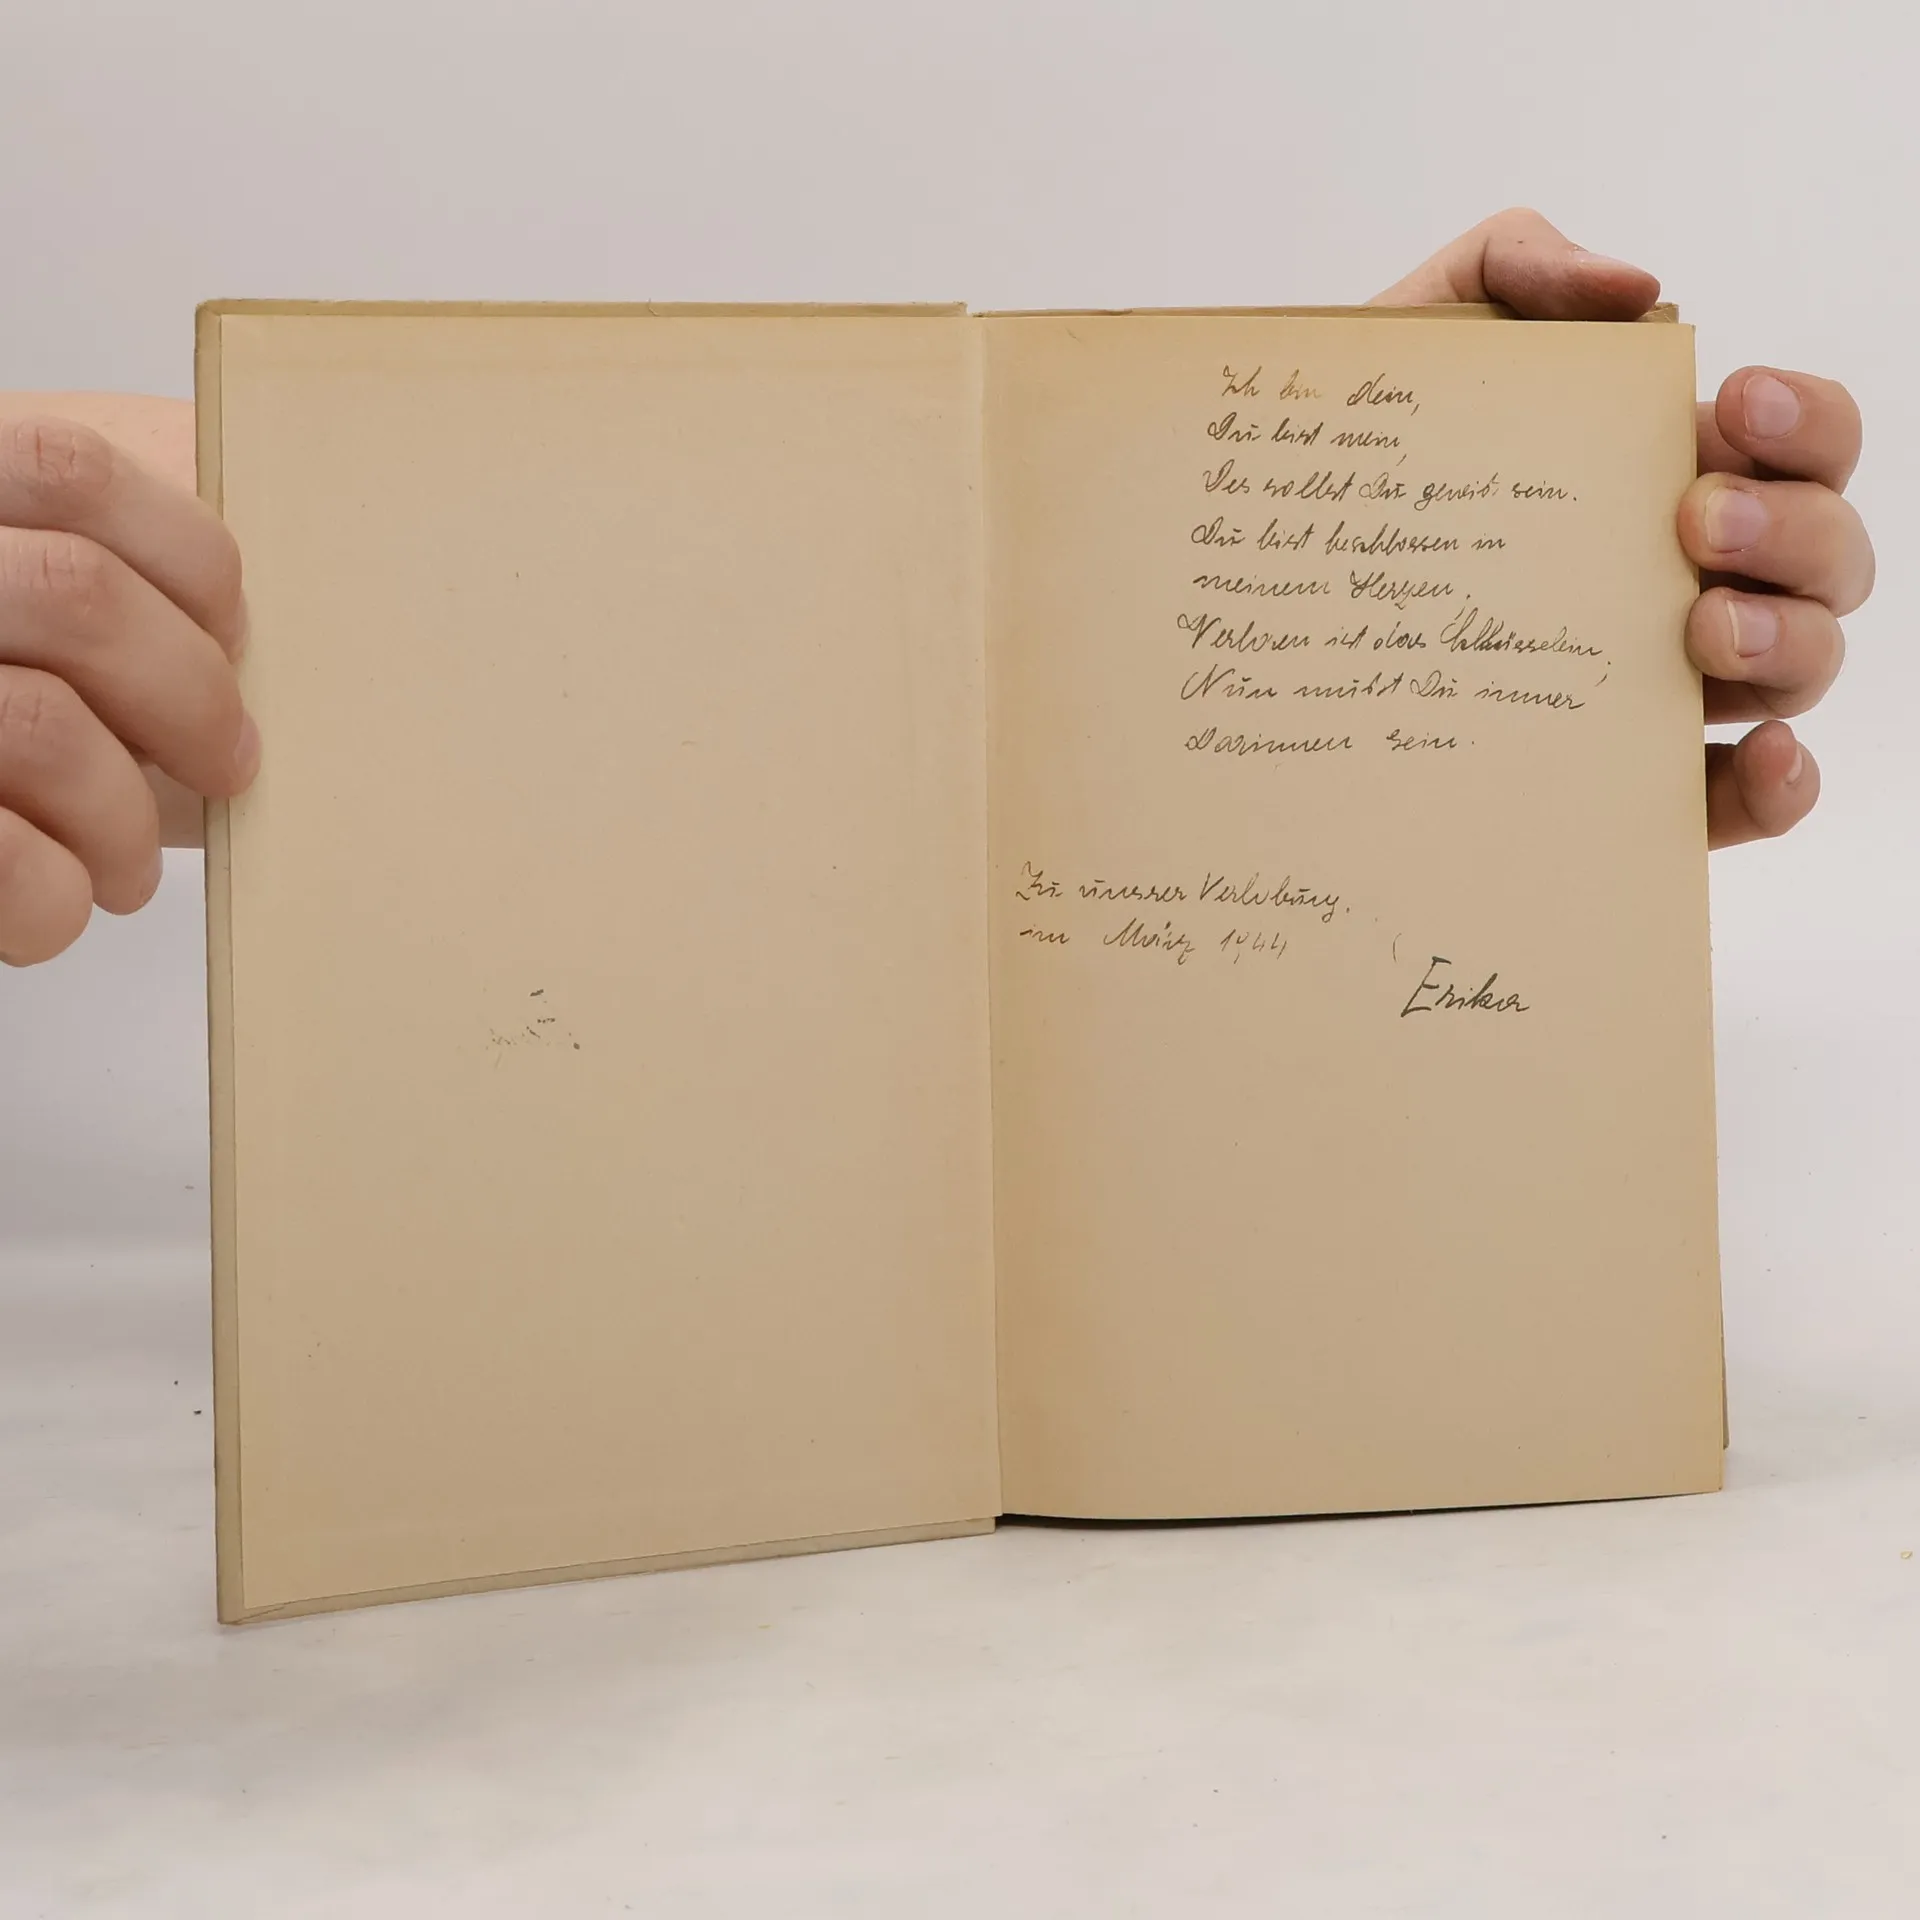 Ich bin dein,
Du bist mein,
Des sollst Du gewiß sein.
Du bist beschlossen in
meinem Herzen,
Verloren ist das Schlüsselein,
Nun mußt Du immer
Darinnen sein.
Zu unserer Verlobung.
im März 1944
Erika